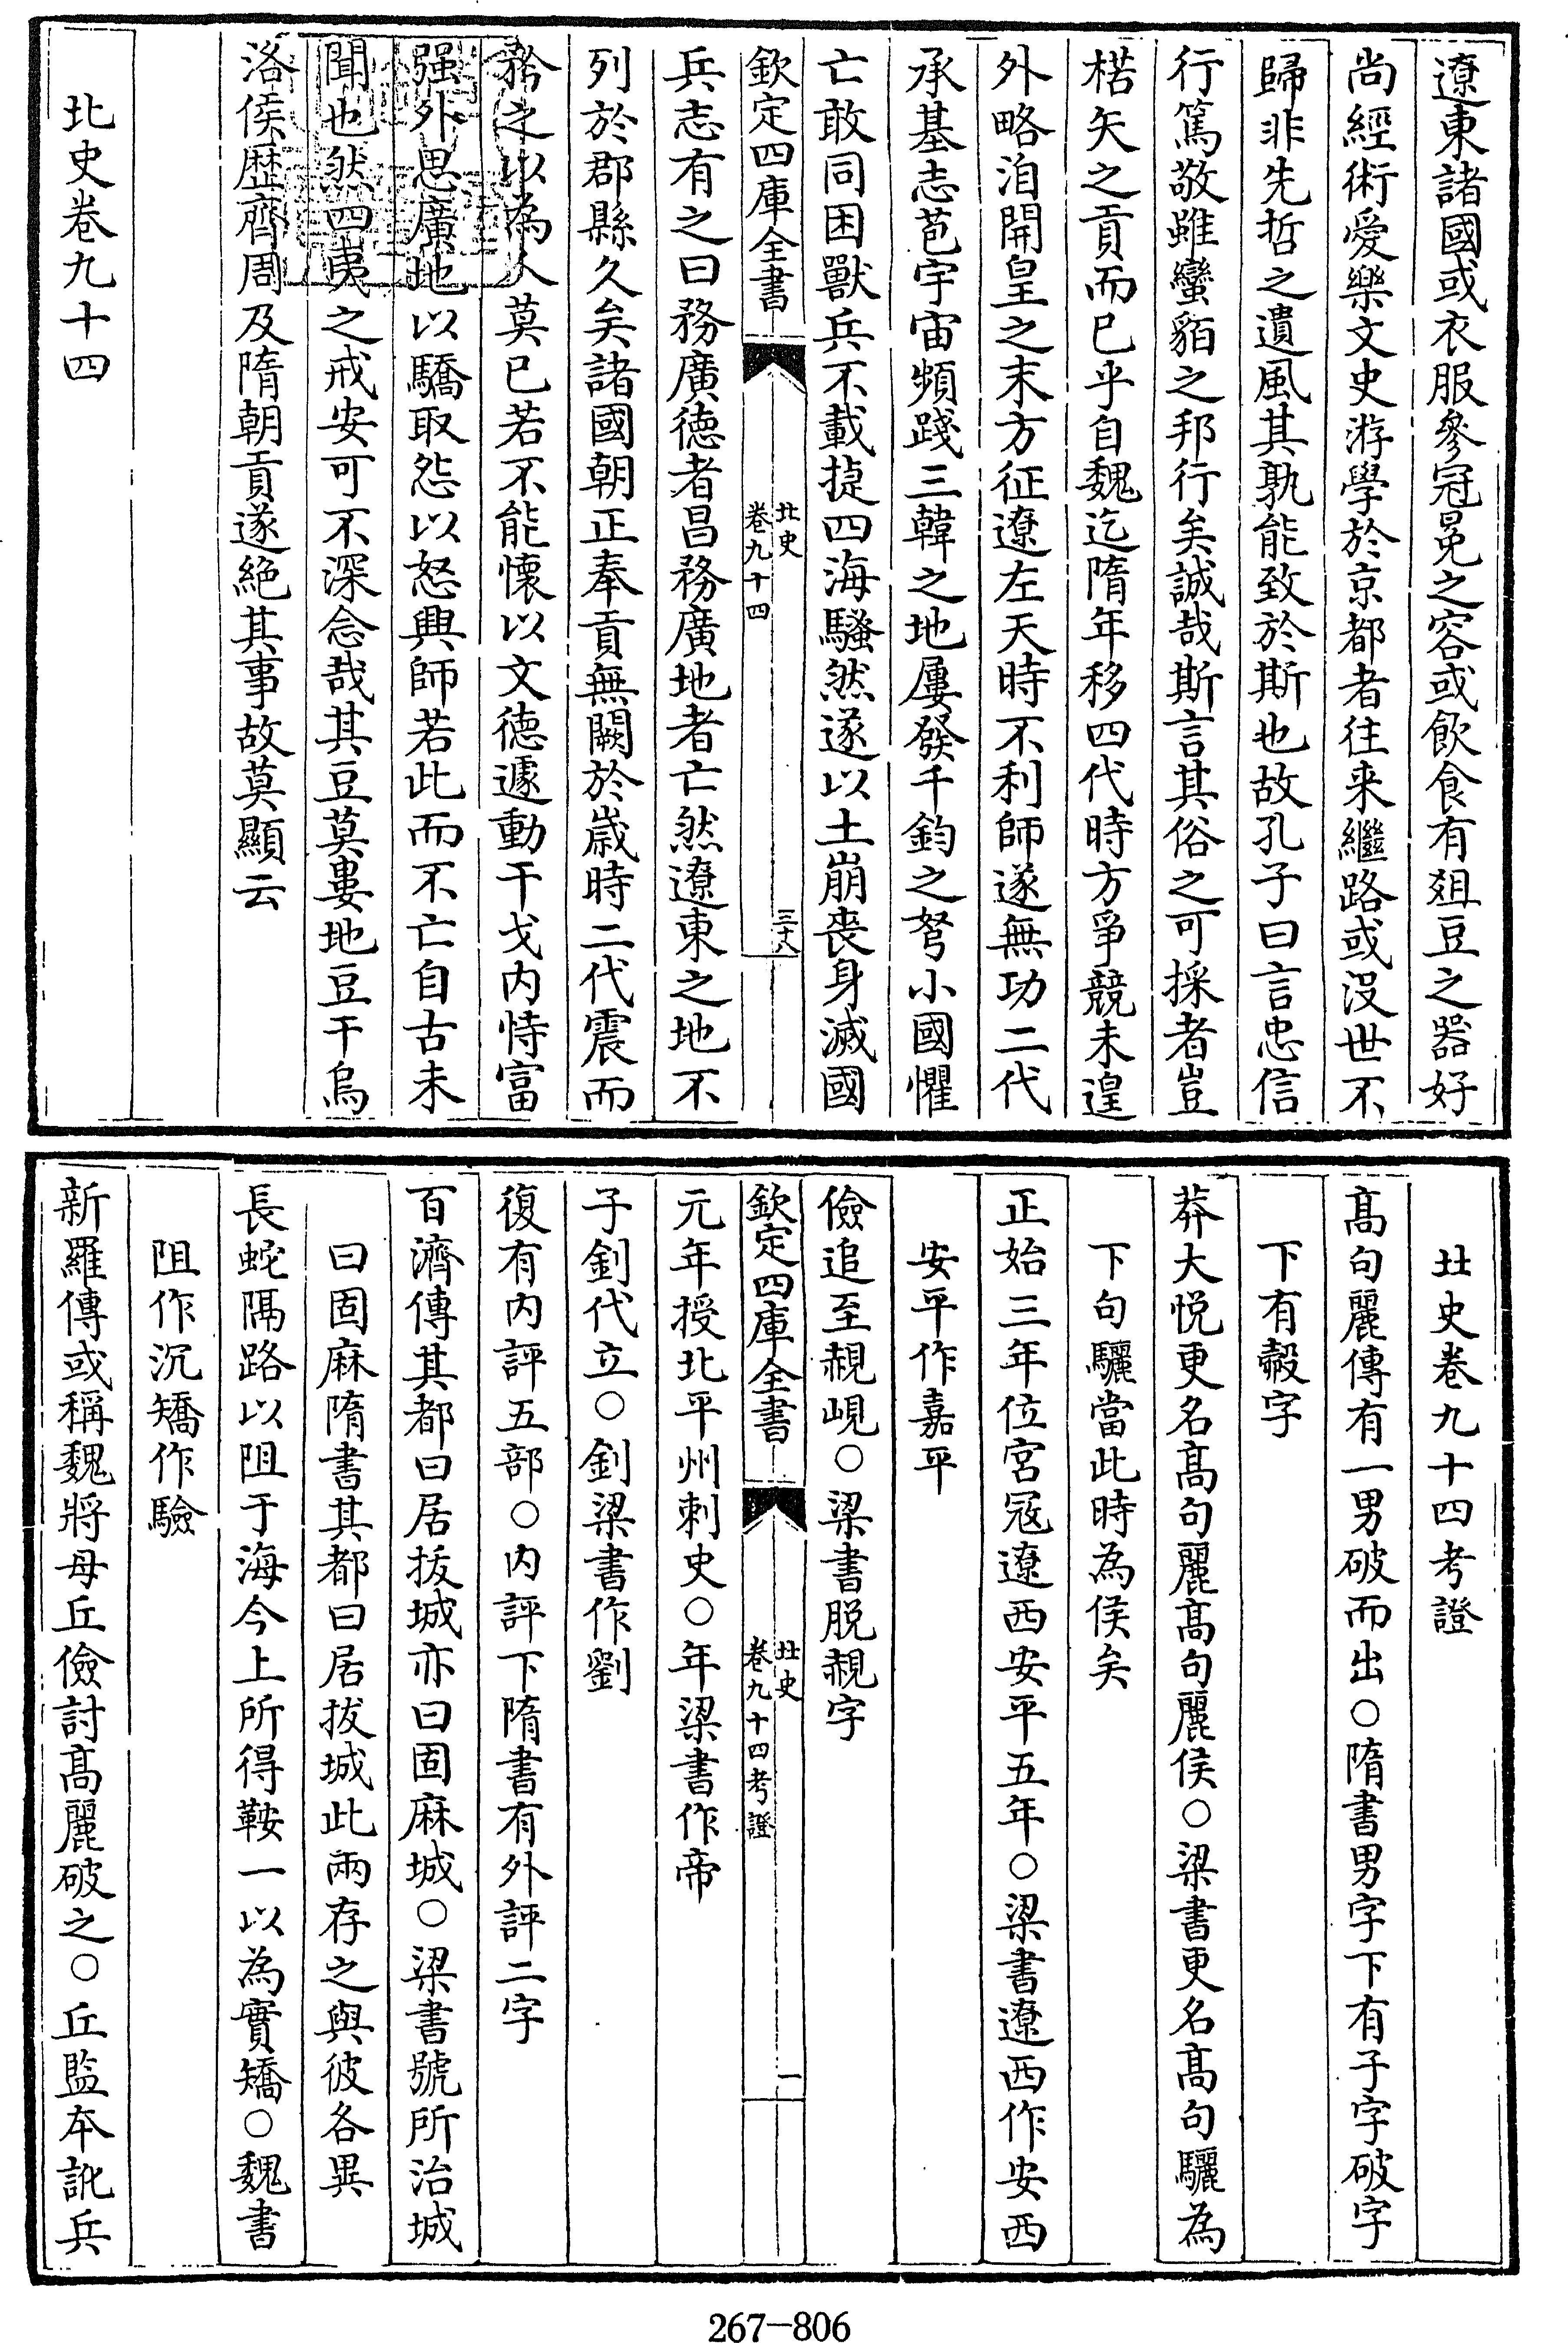 遼東諸國或衣服參冠冕之容或飲食有俎豆之器好
尚經術愛樂文史游學於京都者往来繼路或沒世不
歸非先哲之遺風其孰能致於斯也故孔子曰言忠信
行篤敬雖蠻貊之邦行矣誠哉斯言其俗之可採者豈
楛矢之貢而已乎自魏迄隋年移四代時方爭競未遑
外略洎開皇之末方征遼左天時不利師遂無功二代
承基志苞宇宙頻踐三韓之地屢發千鈞之弩小國懼
亡敢同困獸兵不載捷四海騷然遂以土崩喪身滅國
欽定四庫全書
北史
卷九十四
三十八
兵志有之曰務廣德者昌務廣地者亡然遼東之地不
列於郡縣久矣諸國朝正奉貢無闕於歲時二代震而
矜之以為人莫已若不能懷以文德遽動干戈内恃富
强外思廣地以驕取怨以怒興師若此而不亡自古未
聞也然四夷之戒安可不深念哉其豆莫婁地豆干烏
洛侯歴齊周及隋朝貢遂絶其事故莫顯云
北史卷九十四
北史卷九十四考證
髙句麗傳有一男破而出○隋書男字下有子字破字
下有㲉字
莽大悦更名髙句麗髙句麗侯○梁書更名髙句驪為
下句驪當此時為侯矣
正始三年位宮寇遼西安平五年○梁書遼西作安西
安平作嘉平
儉追至䞓峴○梁書脱䞓字
欽定四庫全書
北史
卷九十四考證
一
元年授北平州刺史○年梁書作帝
子釗代立○釗梁書作劉
復有内評五部○内評下隋書有外評二字
百濟傳其都曰居拔城亦曰固麻城○梁書號所治城
曰固麻隋書其都曰居拔城此兩存之與彼各異
長蛇隔路以阻于海今上所得鞍一以為實矯○魏書
阻作沉矯作驗
新羅傳或稱魏將毋丘儉討髙麗破之○丘監本訛兵
267-806